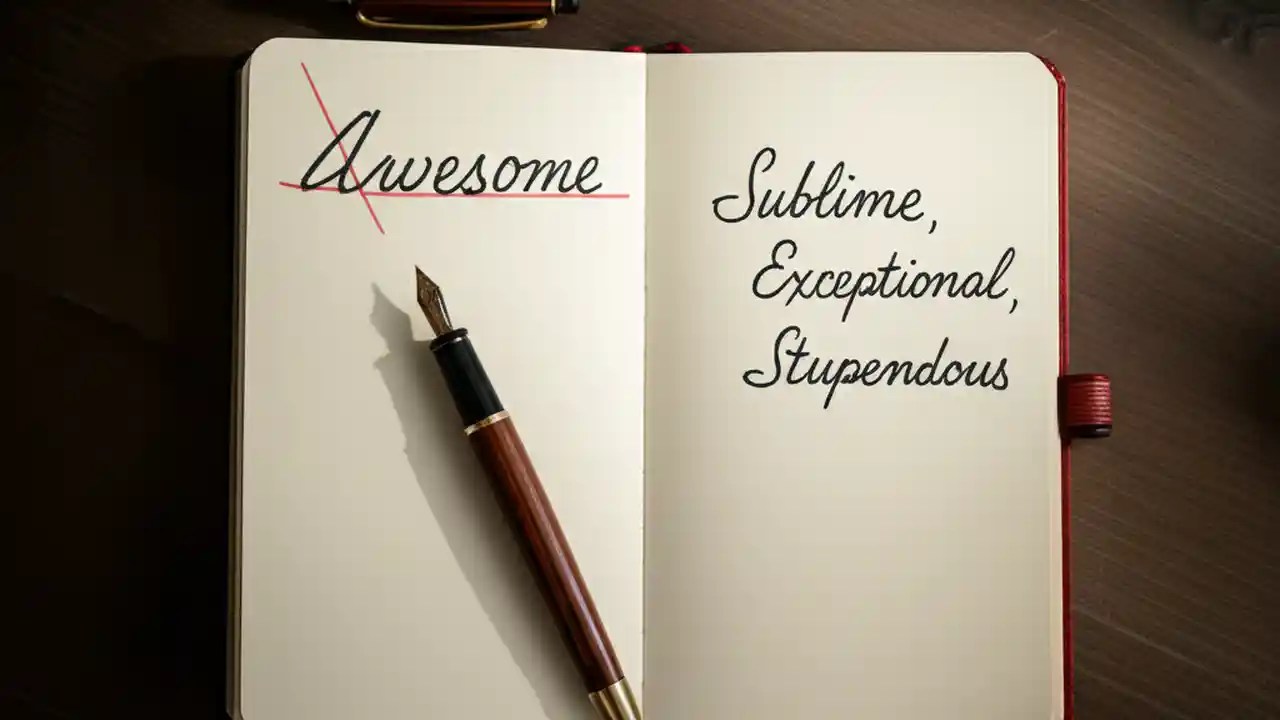 Awesome
Sublime,
Exceptional,
Stupendous